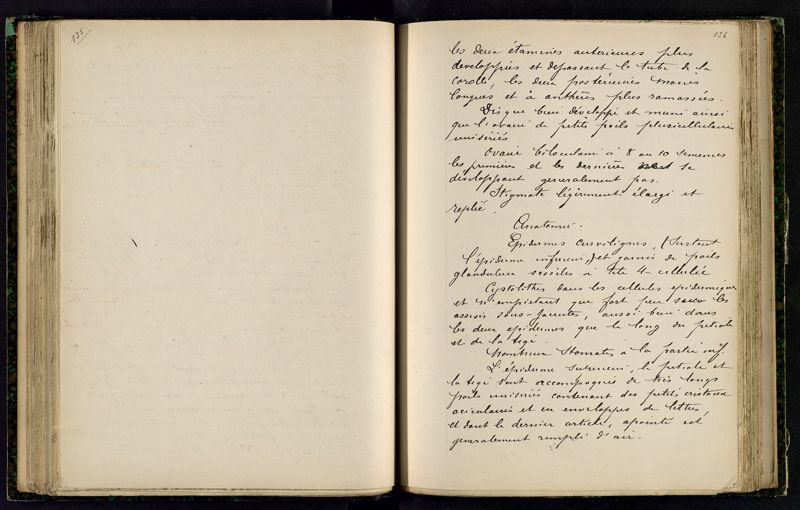 135
136
les deux étamines anterieures plus
developpées et depassant le tube de la
corolle, les deux postérieures moins
longues et à anthères plus ramassées.
Disque bien développé et muni ainsi
que l'ovaire de petits poils plusicellulaires
unisériés
Ovaire biloculaire à 8 ou 10 semences
les premieres et les dernieres ne se
developpant generalement pas.
Stigmate légèrement élargi et
replié.
Anatomie.
Epidermes curvilignes, (surtout
l'épiderme inferieur,) et garnis de poils
glanduleux sessiles à tête 4-cellulée
Cystolithes dans les cellules epidermiques
et n'empietant que fort peu sous les
assises sous-jacentes, aussi bien dans
les deux epidermes que le long du petiole
et de la tige.
Nombreux Stomates à la partie inf.
L'épiderme superieur, le petiole et
la tige sont accompagnés de très longs
poils unisériés contenant des petits cristaux
aciculaires et en enveloppes de lettres,
et dont le dernier article, apointé est
generalement rempli d'air.